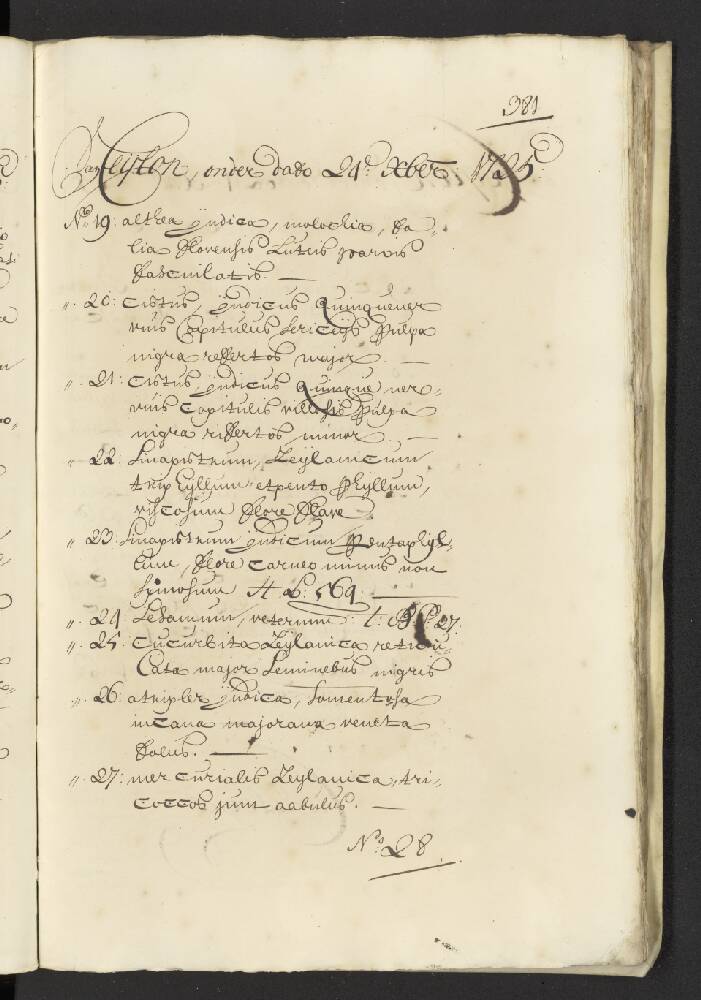 381
Van Ceijlon, onder dato 24:e Xber 1725:
N:o 19: althea jndica, molochia, fa„
lia florensis Luteis parvis
fascuilatis. —
„. 20: Cistus, jndicus Quinquener
viis Capitulus Sericijs Pulpa
nigra reffertos major. —
„. 21: Cistus, jndicus Quinque ner„
viis Capitulis villosis Pulpa
nigra riffertos, minor. —
„. 22: Sinapistrum, Zeijlanicum
triphyllum et pento Phyllum,
viscosum flore flavo
„. 23: Sinapistrum jndicum Pentaphyl„
lum, flore Carneo minus non
spinosum H L: 564. —
„. 24 Sesamum, veterum: l: B P 27.
„. 25: Cucurbita Zeijlanica reticu„
Cata major Seminebus nigris
„. 26: atripler jndica, tomentosa
incana majorana veneta
folus. —
„. 27: mercurialis Zeijlanica, tri„
Coccos jum aabulus. —
N:o 28.